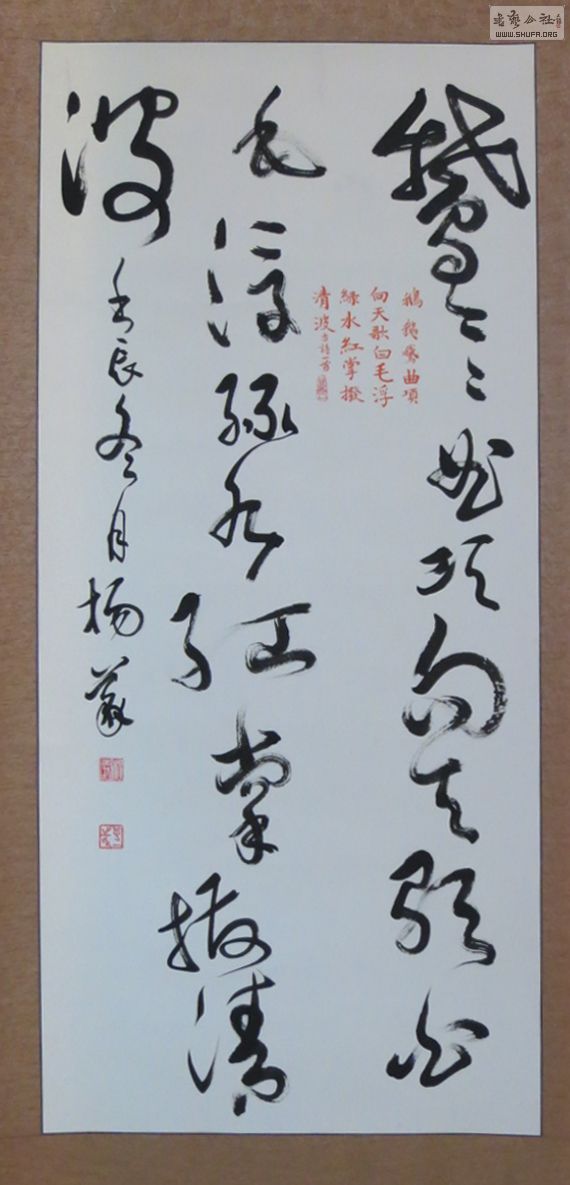 書藝公社
WWW.SHUFA.ORG
鵞〻〻曲項向天歌白
毛浮綠水紅掌撥清
波
壬辰冬月楊
鵝鵝鵞曲項
向天歌白毛浮
綠水紅掌撥
清波古詩一首